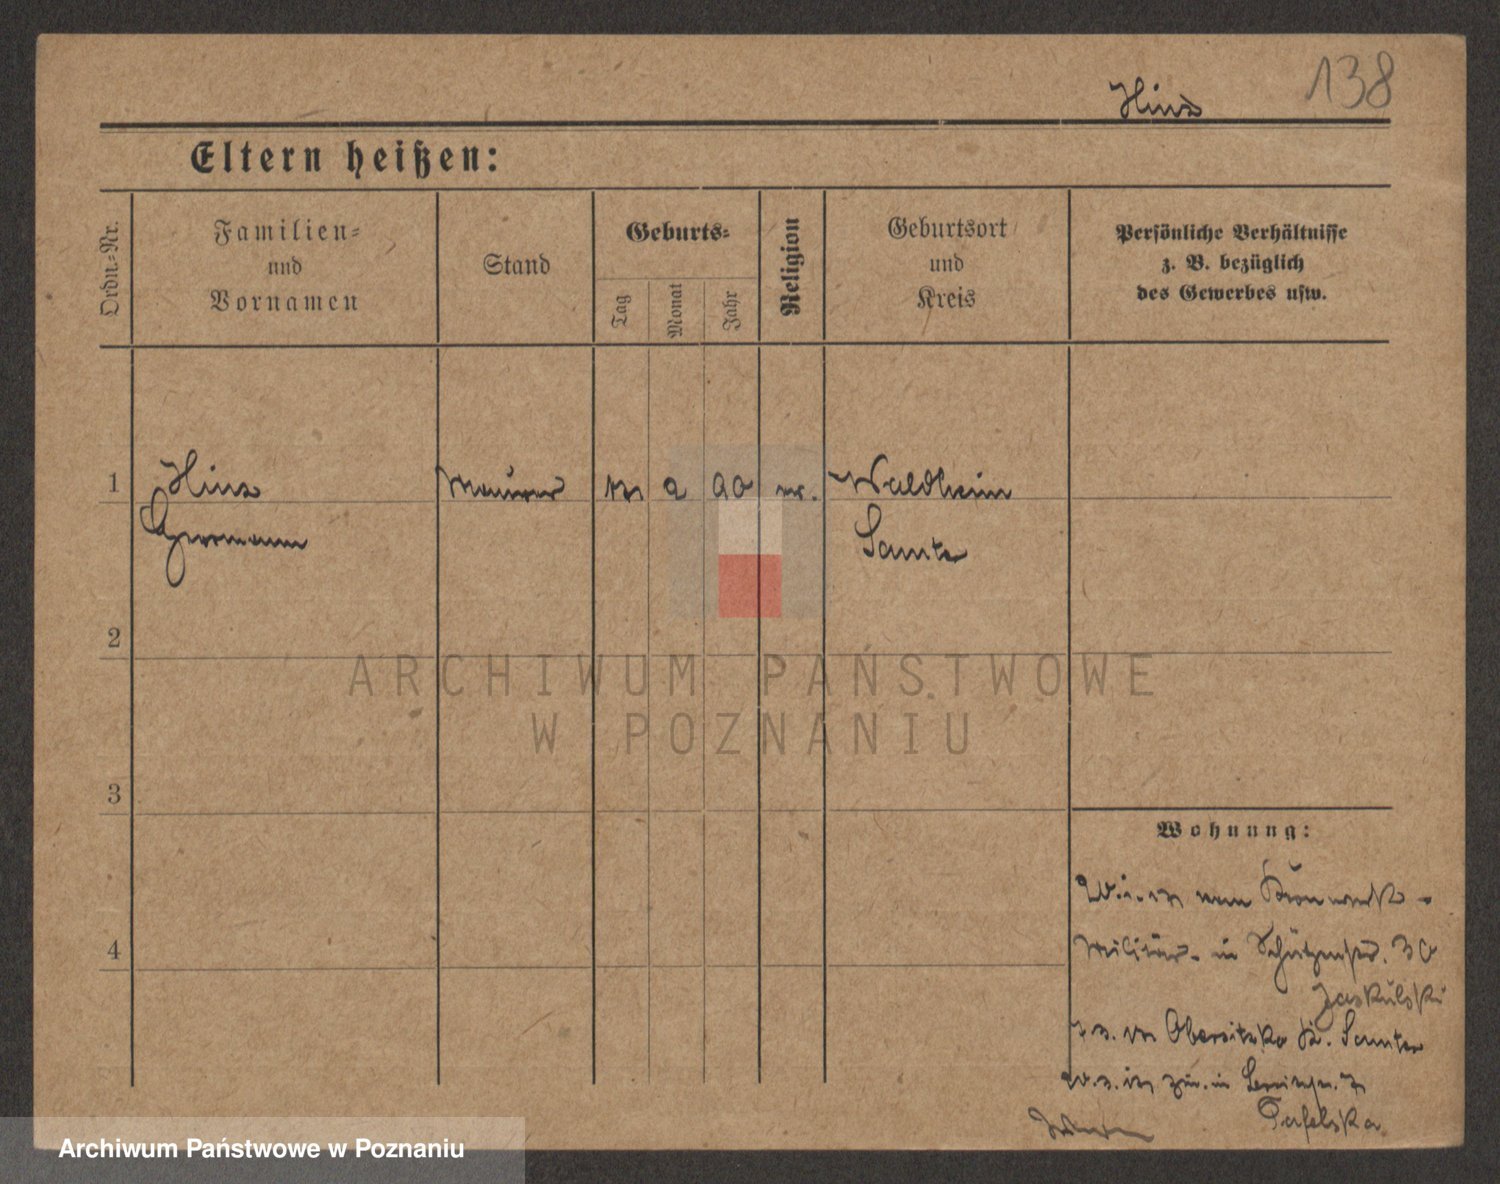 138
Hinz
Eltern heißen:
Ordn.-Nr.
Familien-
und
Vornamen
Stand
Geburts-
Tag
Monat
Jahr
Religion
Geburtsort
und
Kreis
Persönliche Verhältnisse
z. B. bezüglich
des Gewerbes usw.
1 Hinz Maurer 2 90 Waldheim
Hermann Samter
2
3
4
Wohnung:
Kronwerk-
Militär- in Schützenstr. 30
Jaskulski
Obersitzko K. Samter
Tafelska
ARCHIWUM PAŃSTWOWE
W POZNANIU
Archiwum Państwowe w Poznaniu